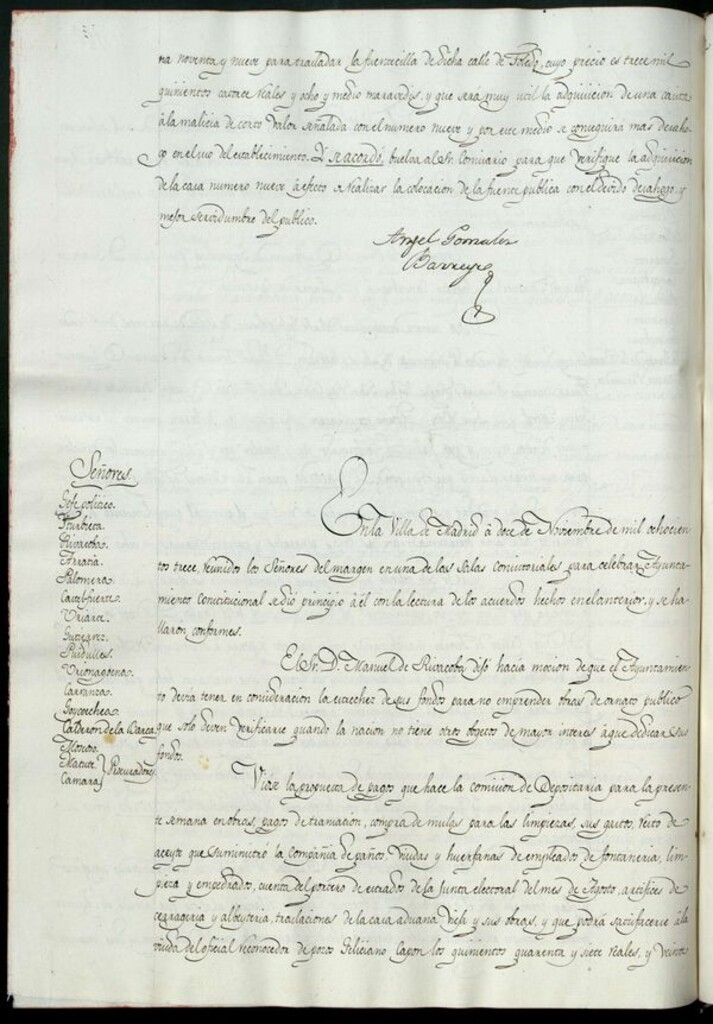 na noventa y nueve para trasladar la fuentecilla de dicha calle de Toledo, cuyo precio es trece mil
quinientos catorce reales y ocho y medio maravedis, y que será muy util la adquisicion de una casita
à la malicia de corto valor señalada con el numero nueve y por este medio se conseguira mas desaho-
go en el uso del establecimiento. Y se acordó, buelva al Sr. Comisario para que verifique la adquisicion
de la casa numero nueve à efecto a realizar la colocacion de la fuente publica con el devido desahogo y
mejor servidumbre del publico.
Angel Gonzalez
Barreyro
Señores.
Gefe politico.
Yturbieta.
Rivacoba.
Arratia.
Palomera.
Castel-fuerte.
Uriarte.
Gutierrez.
Purdulles.
Urionagoena.
Carranza.
Goycoechea.
Calderon de la Barca.
Moscoso.
Matute
Camara
Procuradores.
En la Villa de Madrid à doce de Noviembre de mil ochocien-
tos trece, reunidos los Señores del margen en una de las Salas Consistoriales para celebrar Ayunta-
miento Constitucional se dió principio à él con la lectura de los acuerdos hechos en el anterior, y se ha-
llaron conformes.
El Sr. D. Manuel de Rivacoba hiso hacia mocion de que el Ayuntamien-
to devia tener en consideracion la estrechez de sus fondos para no emprender obras de ornato publico
que solo deven verificarse quando la nacion no tiene otros objetos de mayor interes à que dedicar sus
fondos.
Viose la propuesta de pagos que hace la comision de Depositaria para la presen-
te semana en obras, pagos de transacion, compra de mulas para las limpiezas, sus gastos, resto de
aceyte que suministró la Compañia de paños, viudas y huerfanas de empleados de fontaneria, lim-
pieza y empedrados, cuenta del portero de estrados de la Junta electoral del mes de Agosto, artifices de
cerrageria y albeyteria, traslaciones de la casa aduana vieja y sus obras, y que podrá satisfacerse à la
viuda del oficial reconocedor de pozos Feliciano Capon los quinientos quarenta y siete reales, y veinte